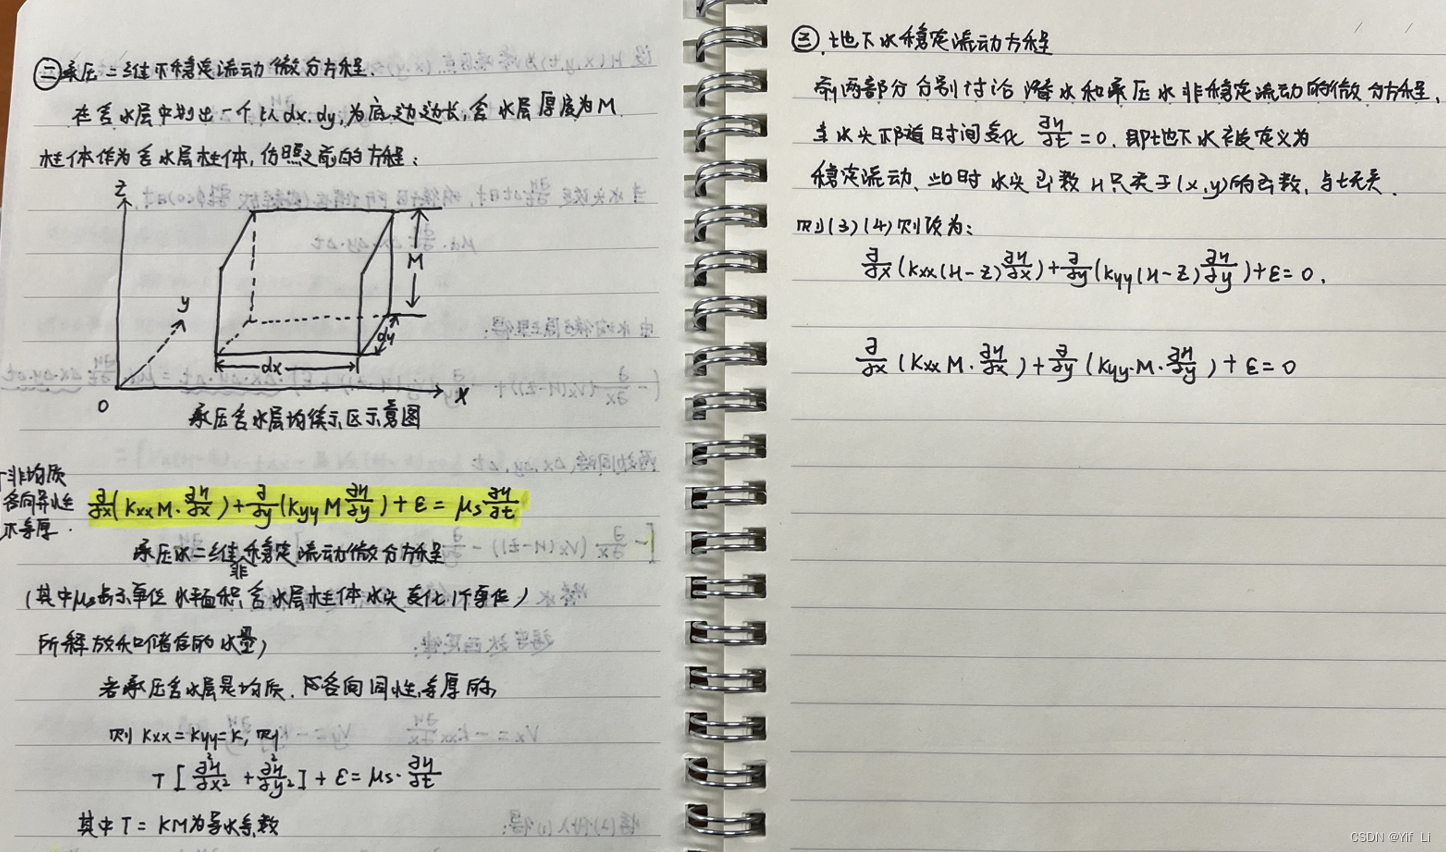 ㊁承压二维不稳定流动微分方程.
在含水层中划出一个以dx.dy,为底边边长,含水层厚度为M
柱体作为含水层柱体,仿照之前的方程:
z
M
y
dy
dx
0
x
承压含水层均衡示区示意图
非均质
各向异性
不等厚.
∂/∂x(KxxM·∂H/∂x)+∂/∂y(KyyM∂H/∂y)+ε=μs∂H/∂t
承压水二维非稳定流动微分方程
(其中μs表示单位水平面积,含水层柱体水头变化1个单位)
所释放和储存的水量)
若承压含水层是均质.各向同性,等厚的,
则Kxx=Kyy=K,则
T[∂²H/∂x²+∂²H/∂y²]+ε=μs·∂H/∂t
其中T=KM为导水系数
㊂.地下水稳定流动方程
前两部分分别讨论潜水和承压水非稳定流动的微分方程,
当水头不随时间变化 ∂H/∂t=0.即地下水被定义为
稳定流动.此时水头函数H只关于(x,y)的函数,与t无关.
则(3)(4)则改为:
∂/∂x(Kxx(H-Z)∂H/∂x)+∂/∂y(Kyy(H-Z)∂H/∂y)+ε=0.
∂/∂x(KxxM·∂H/∂x)+∂/∂y(Kyy·M·∂H/∂y)+ε=0
CSDN @Yif Li